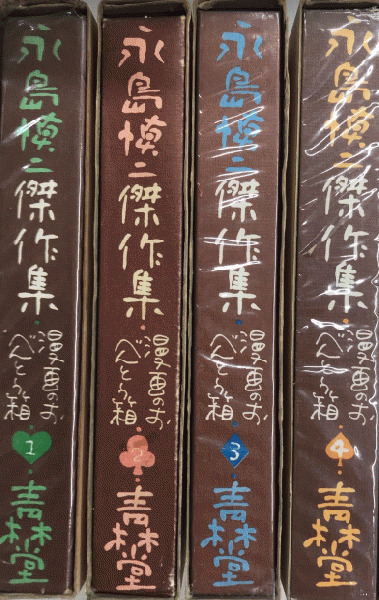 永島慎二傑作集・
漫画のお
べんとう箱
1
青林堂
永島慎二傑作集・
漫画のお
べんとう箱
2
青林堂
永島慎二傑作集・
漫画のお
べんとう箱
3
青林堂
永島慎二傑作集・
漫画のお
べんとう箱
4
青林堂